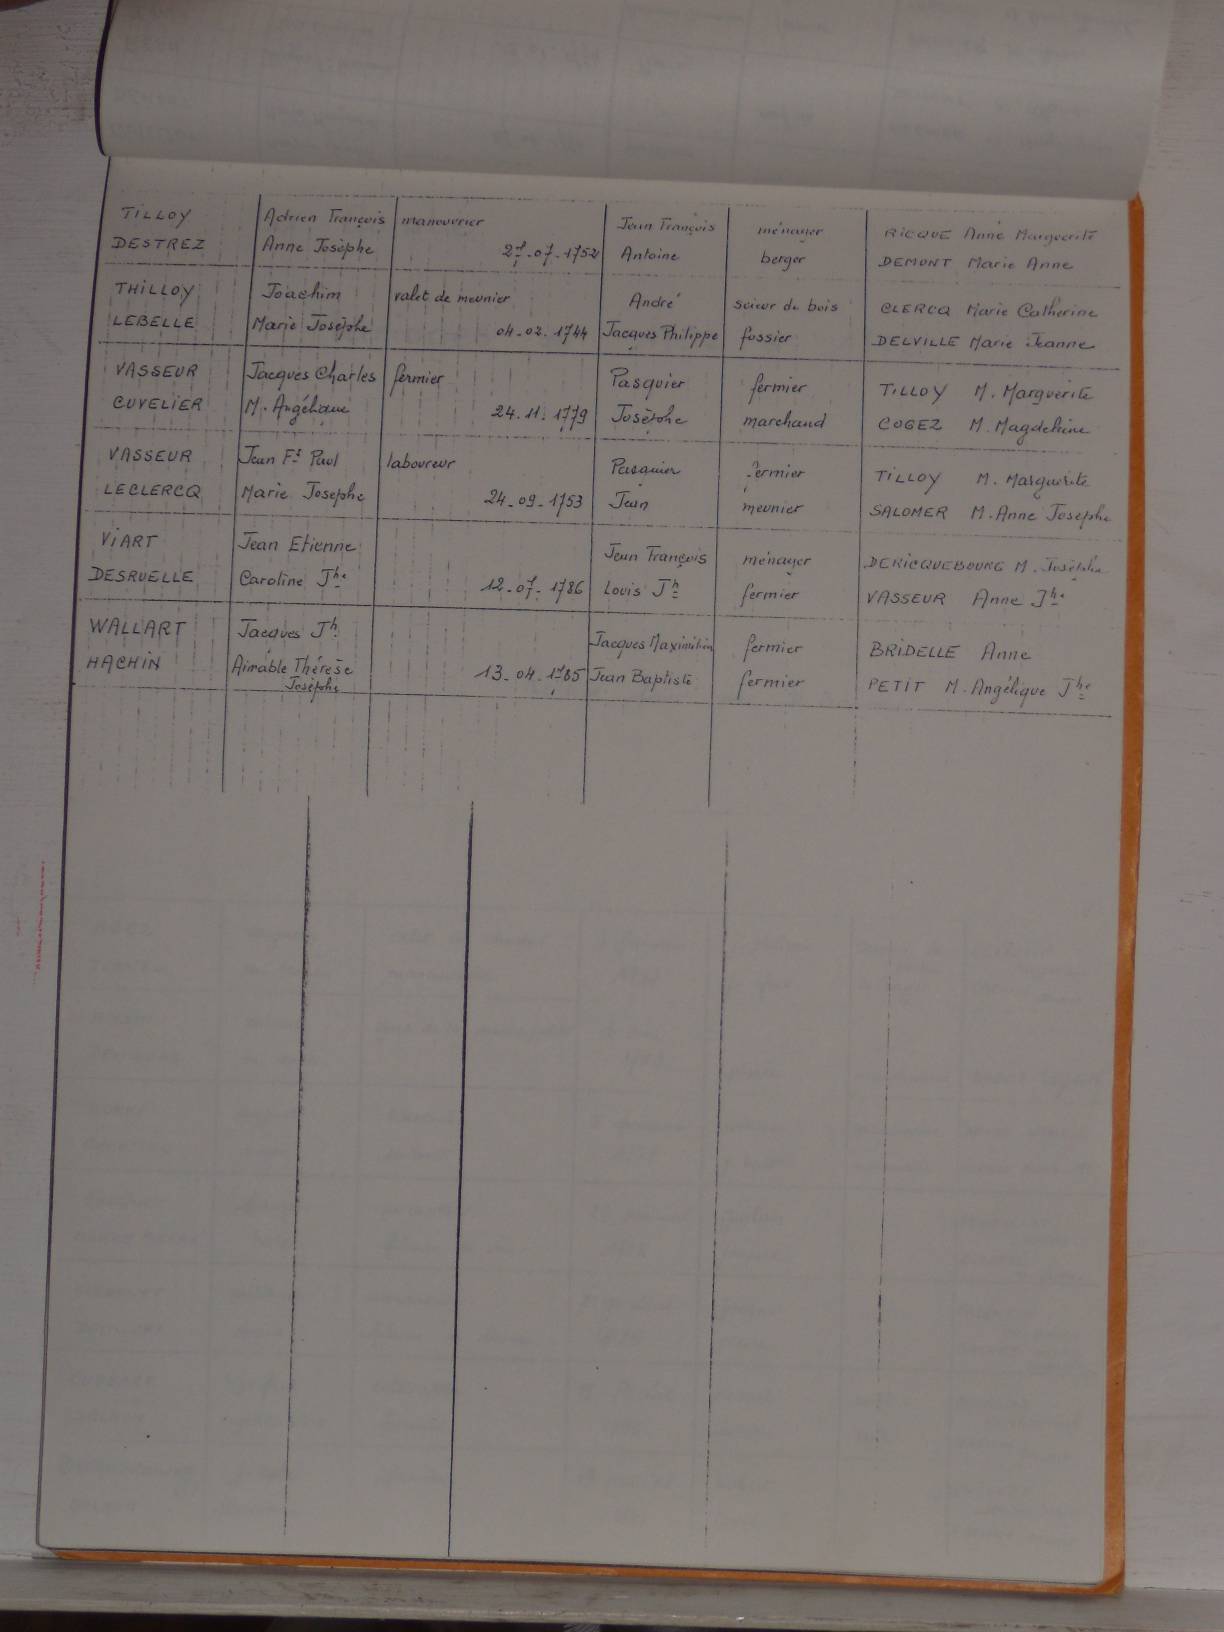 TILLOY Adrien François manouvrier Jean François ménager RICQUE Anne Marguerite
DESTREZ Anne Josèphe 27-07-1752 Antoine berger DEMONT Marie Anne
THILLOY Joachim valet de meunier André scieur de bois CLERCQ Marie Catherine
LEBELLE Marie Josèphe 04-02-1744 Jacques Philippe fossier DELVILLE Marie Jeanne
VASSEUR Jacques Charles fermier Pasquier fermier TILLOY M. Marguerite
CUVELIER M. Angélique 24.11.1779 Josèphe marchand COGEZ M. Magdeleine
VASSEUR Jean Fs Paul laboureur Pasquier fermier TILLOY M. Marguerite
LECLERCQ Marie Josephe 24-09-1753 Jean meunier SALOMER M. Anne Josephe
VIART Jean Etienne Jean François ménager DERICQUEBOURG M. Josèphe
DESRUELLE Caroline Jhe 12-07-1786 Louis Jh fermier VASSEUR Anne Jhe
WALLART Jacques Jh Jacques Maximilien fermier BRIDELLE Anne
HACHIN Aimable Thérèse 13-04-1785 Jean Baptiste fermier PETIT M. Angélique Jhe
Josèphe